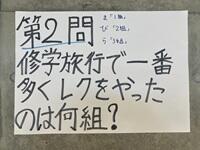 第2問
ま「1組」
び「2組」
ら「34組」
修学旅行で一番
多くレクをやった
のは何組？